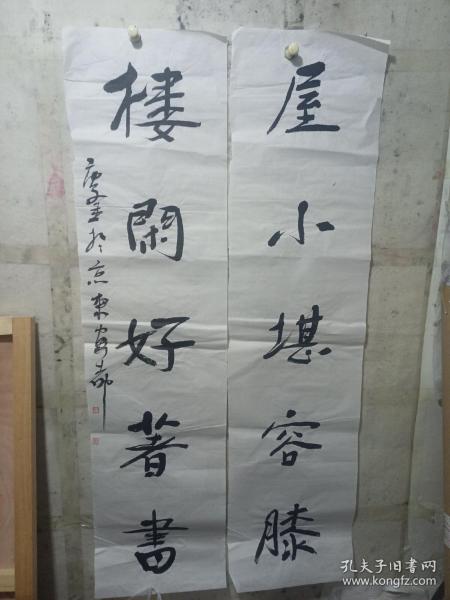 屋小堪容膝
樓閑好著書
於京東
孔夫子旧书网
www.kongfz.com